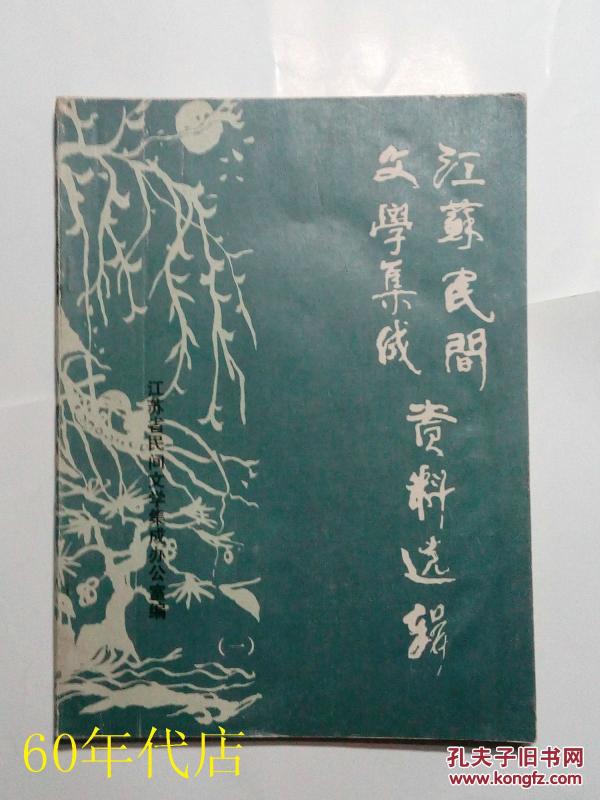 江蘇民間
文學集成
资料选辑
(一)
江苏省民间文学集成办公室编
60年代店
孔夫子旧书网
www.kongfz.com